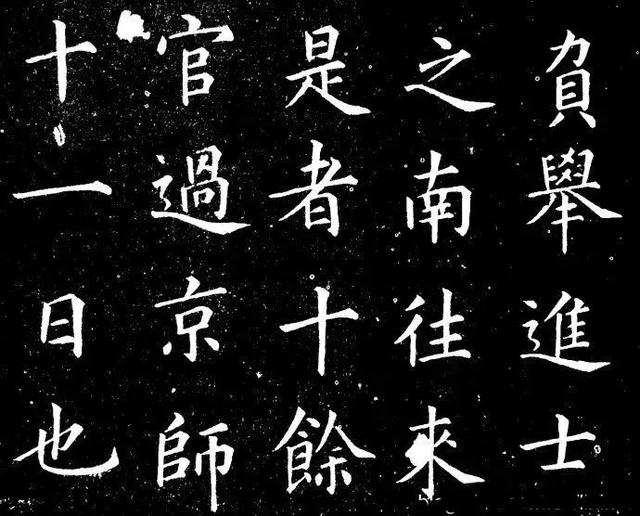 負舉進士
之南徃來
是者十餘
官過京師
十一日也